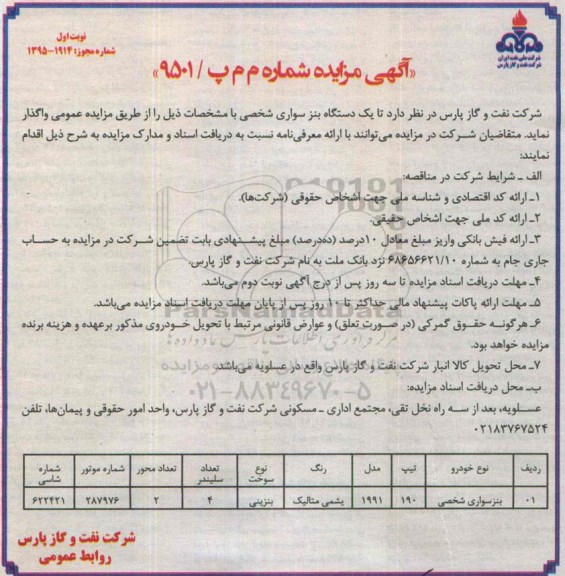 نوبت اول
شماره مجوز: ۱۹۱۴-۱۳۹۵
شرکت ملی نفت ایران
شرکت نفت و گاز پارس
«آگهی مزایده شماره م م پ / ۹۵۰۱»
شرکت نفت و گاز پارس در نظر دارد تا یک دستگاه بنز سواری شخصی با مشخصات ذیل را از طریق مزایده عمومی واگذار
نماید. متقاضیان شرکت در مزایده می‌توانند با ارائه معرفی‌نامه نسبت به دریافت اسناد و مدارک مزایده به شرح ذیل اقدام
نمایند:
الف ـ شرایط شرکت در مناقصه:
۱ـ ارائه کد اقتصادی و شناسه ملی جهت اشخاص حقوقی (شرکت‌ها).
۲ـ ارائه کد ملی جهت اشخاص حقیقی.
۳ـ ارائه فیش بانکی واریز مبلغ معادل ۱۰درصد (ده‌درصد) مبلغ پیشنهادی بابت تضمین شرکت در مزایده به حساب
جاری جام به شماره ۶۸۶۵۶۶۲۱/۱۰ نزد بانک ملت به نام شرکت نفت و گاز پارس.
۴ـ مهلت دریافت اسناد مزایده تا سه روز پس از درج آگهی نوبت دوم می‌باشد.
۵ـ مهلت ارائه پاکات پیشنهاد مالی حداکثر تا ۱۰ روز پس از پایان مهلت دریافت اسناد مزایده می‌باشد.
۶ـ هرگونه حقوق گمرکی (در صورت تعلق) و عوارض قانونی مرتبط با تحویل خودروی مذکور برعهده و هزینه برنده
مزایده خواهد بود.
۷ـ محل تحویل کالا انبار شرکت نفت و گاز پارس واقع در عسلویه می‌باشد.
ب‌ـ محل دریافت اسناد مزایده:
عسلویه، بعد از سه راه نخل تقی، مجتمع اداری ـ مسکونی شرکت نفت و گاز پارس، واحد امور حقوقی و پیمان‌ها، تلفن
۰۲۱۸۳۷۶۷۵۲۴
ردیف نوع خودرو تیپ مدل رنگ نوع سوخت تعداد سلیندر تعداد محور شماره موتور شماره شاسی
۰۱ بنزسواری شخصی ۱۹۰ ۱۹۹۱ یشمی متالیک بنزینی ۴ ۲ ۲۸۷۹۷۶ ۶۲۲۴۲۱
شرکت نفت و گاز پارس
روابط عمومی
ParsNamadData
۰۲۱-۸۸۳۴۹۶۷۰-۵